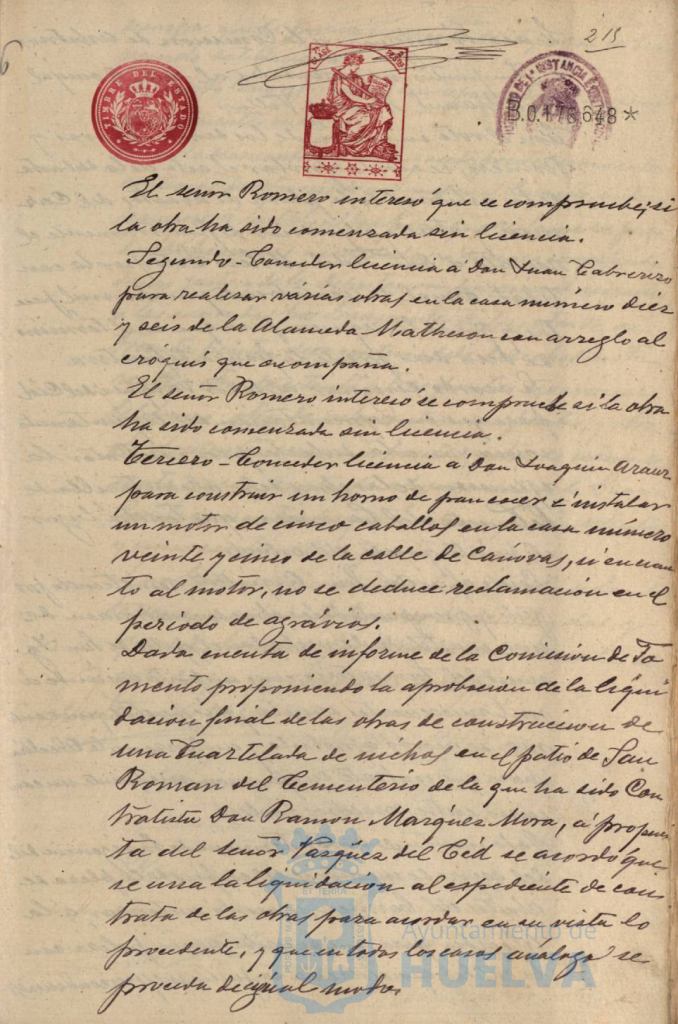 215
TIMBRE DEL ESTADO
B.0.178.648*
El señor Romero interesó que se compruebe, si
la obra ha sido comenzada sin licencia.
Segundo - Conceder licencia á Don Juan Cabrerizo
para realizar várias obras en la casa número diez
y seis de la Alameda Matheson con arreglo al
cróquis que acompaña.
El señor Romero interesó se compruebe si la obra
ha sido comenzada sin licencia.
Tercero - Conceder licencia á Don Joaquin Arauz
para construir un horno de pan cocer é instalar
un motor de cinco caballos en la casa número
veinte y cinco de la calle de Cánovas, si en cuan
to al motor, no se deduce reclamación en el
periodo de agrávios.
Dada cuenta de informe de la Comision de Fo
mento proponiendo la aprobacion de la liqui
dacion final de las obras de construccion de
una Cuartelada de nichos en el patio de San
Roman del Cementerio de la que ha sido Con
tratista Don Ramon Marquez Mora, á propues
ta del señor Vazquez del Cid se acordó que
se una la liquidacion al espediente de con
trata de las obras para acordar en su vista lo
procedente, y que en todos los casos análogos se
proceda de igual modo.
Ayuntamiento de
HUELVA